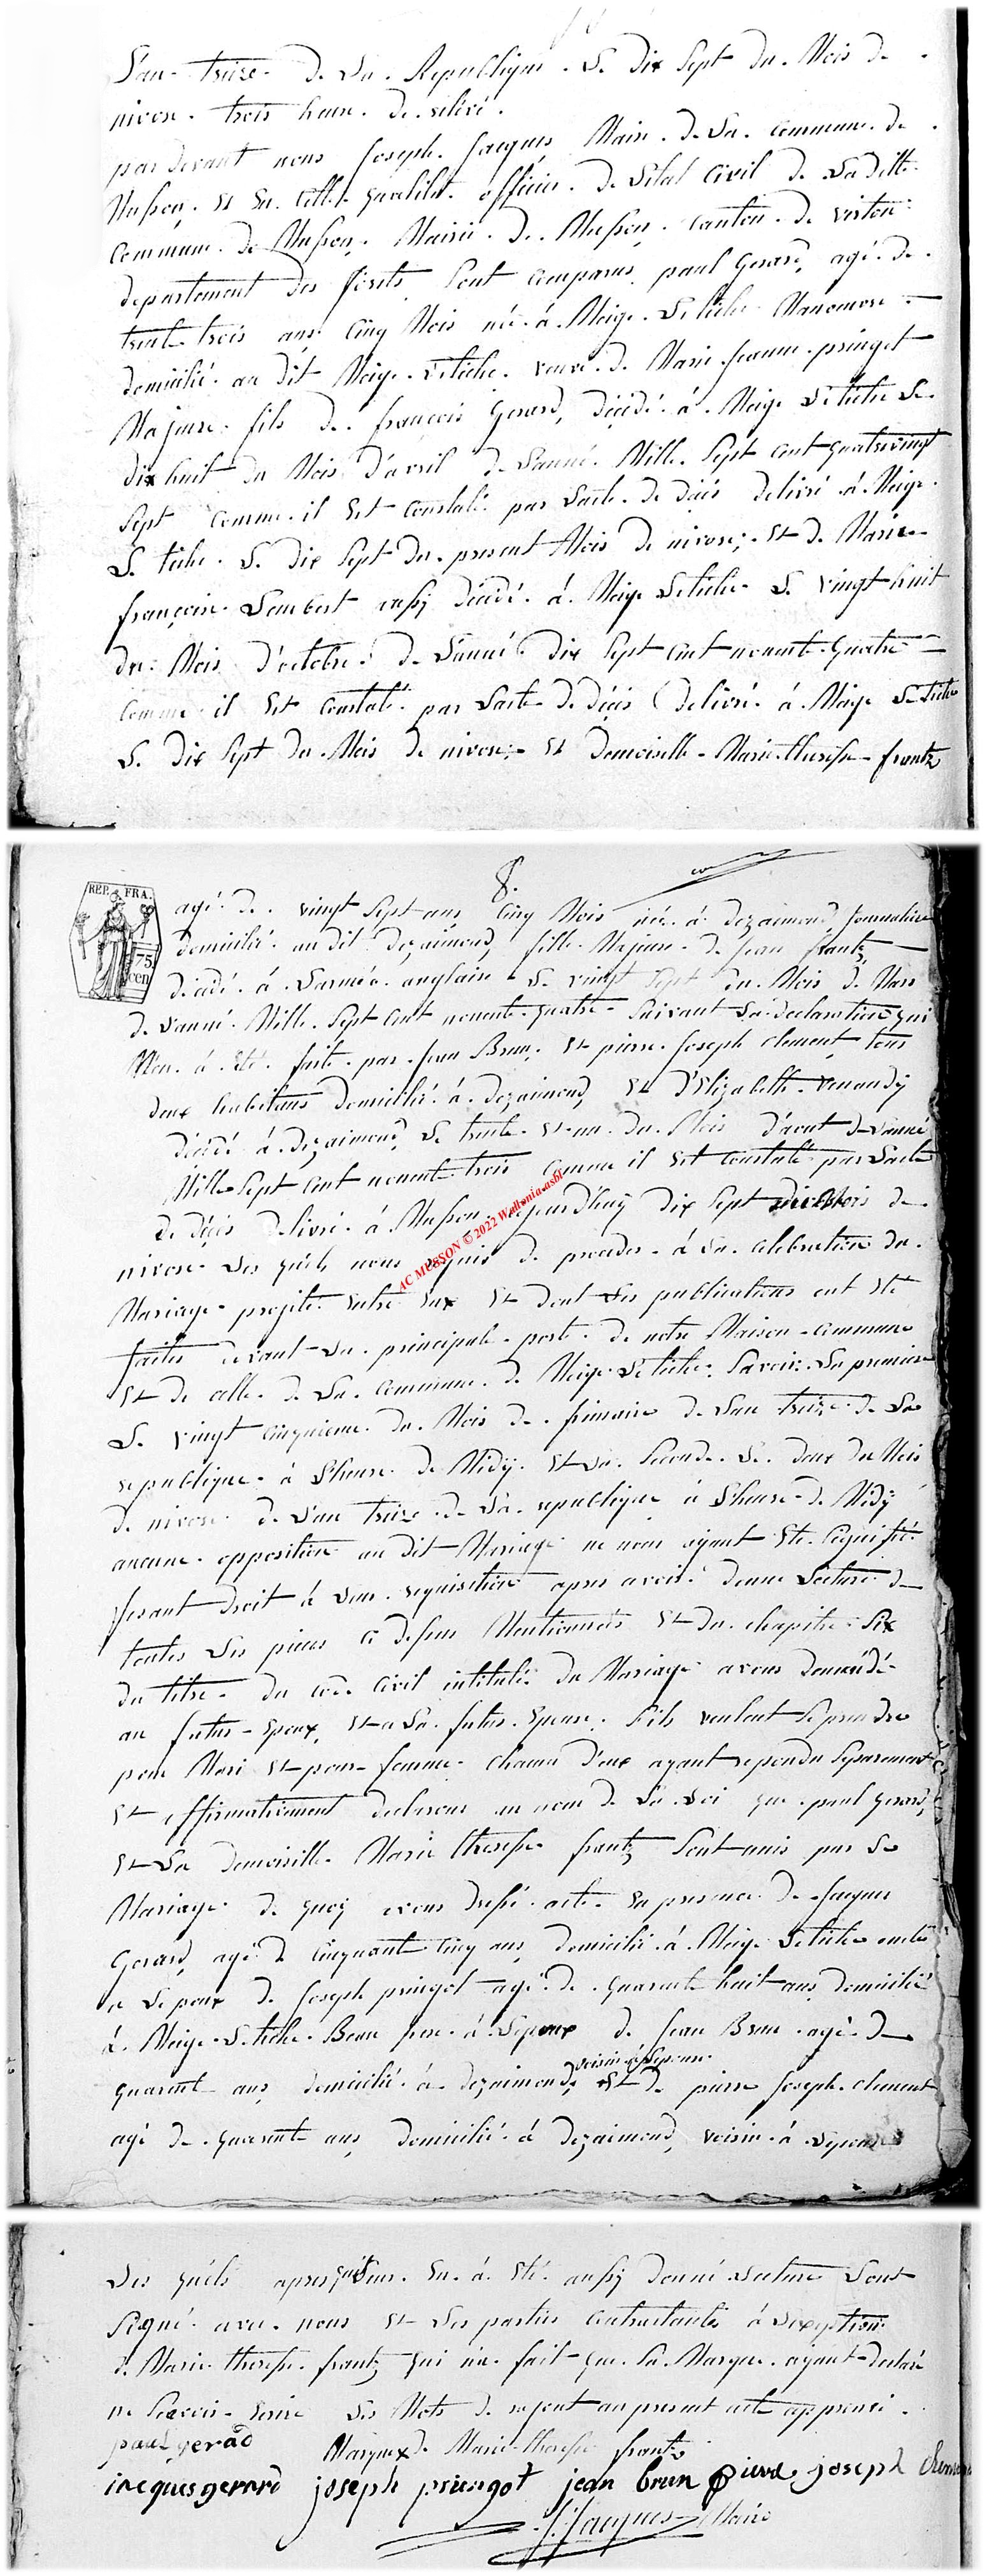 L'an treize de La Republique Le dix Sept du Mois de
nivose trois heure de relevé.
par devant nous Joseph Jacques Maire de La commune de
Musson et En cette qualité officier de L'etat Civil de Laditte
Commune de Musson, Mairie de Musson canton de virton
departement des forêts Sont comparus paul Gerard, agé de
trente trois ans Cinq Mois né á Meix Le tiche Manoeuvre
domicilié au dit Meix Letiche veuve de Marie Jeanne pringot
Majeure fils de françois Gerard, décédé á Meix Letiche Le
dix huit du Mois d'avril de L'anné Mille Sept cent quatrevingt
Sept comme il Est constaté par L'acte de décés delivré á Meix
Le tiche Le dix Sept du present Mois de nivose; Et de Marie
françoise Lambert aussy décédé á Meix Letiche Le vingt huit
du Mois d'octobre de L'anné dix Sept cent nonante Quatre
comme il Est Constaté par L'acte de décés delivré á Meix Le tiche
Le dix Sept du Mois de nivose; Et demoiselle Marie theresse frantz
8.
REP. FRA.
75 cen
agé de vingt Sept ans Cinq Mois née á dezaimond Journaliere
domicilié au dit dezaimond, fille Majeure de Jean frantz
décédé á L'armée anglaise Le vingt Sept du Mois de Mars
de L'anné Mille Sept cent nonante quatre Suivant La declaration qui
M'en á Eté faite par Jean Brun Et pierre Joseph clement tous
deux habitans domicilié á dezaimond, Et d'Elizabeth
décédé á dezaimond, Le trente Et un du Mois d'aout de L'anné
Mille Sept cent nonante trois comme il Est constaté par L'acte
de décés delivré á Musson cejourd'huy dix Sept du Mois de
nivose Les quels nous requis de proceder á La celebration du
Mariage projeté Entre Eux Et dont Les publications ont Eté
faites devant La principale porte de notre Maison commune
Et de celle de La commune de Meix Letiche Savoir La premiere
Le vingt cinquieme du Mois de frimaire de L'an treize de La
republique á L'heure de Midÿ Et La Seconde Le deux du Mois
de nivose de L'an treize de La republique á L'heure de Midÿ
aucune opposition au dit Mariage ne nous ayant Eté Signifié
fesant droit á Leur requisition apres avoir donne Lecture de
toutes Les pieces ci dessus Mentionnées Et du chapitre Six
du titre du code Civil intitulé du Mariage avons demandé
au futur Epoux, Et a La futur Epouse Sils veulent Se prendre
pour Mari Et pour femme chacun d'eux ayant repondu Separement
Et affirmativement declarons au nom de La Loi que paul gerard,
Et La demoiselle Marie theresse frantz Sont unis par Le
Mariage de quoy avons dressé acte En presence de Jacques
Gerard, agé de cinquante Cinq ans, domicilié á Meix Letiche oncle
a Lepoux de Joseph pringot agé de quarante huit ans, domicilié
á Meix Le tiche Beau frere á Lepoux de Jean Brun agé de
voisin á Lepouse
quarente ans, domicilié á dezaimond, Et de pierre Joseph clement
agé de quarante ans, domicilié á dezaimond, voisin á Lepouse
Les quels apres quil Leur En á Eté aussy donné Lecture L'ont
Signé avec nous Et Les parties contractantes á L'exeption
de Marie theresse frantz qui n'a fait que Sa Marque ayant declaré
ne Scavoir Ecrire Les Mots de au present acte approuvé
paul gerad
Marque x de Marie theresse frantz
iacques gerard joseph priengot jean brun pierre joseph clement
J: Jacques Maire
AC MUSSON © 2022 Wallonia.asbl